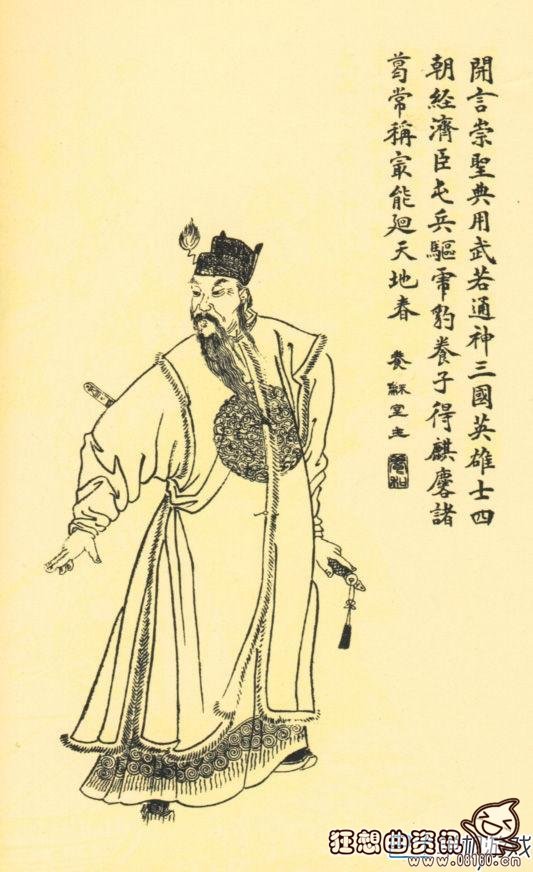 開言崇聖典用武若通神三國英雄士四
朝經濟臣屯兵驅虎豹養子得麒麐諸
葛常稱最能廻天地春
養穌堂主
狂想曲资讯
www.08160.cn